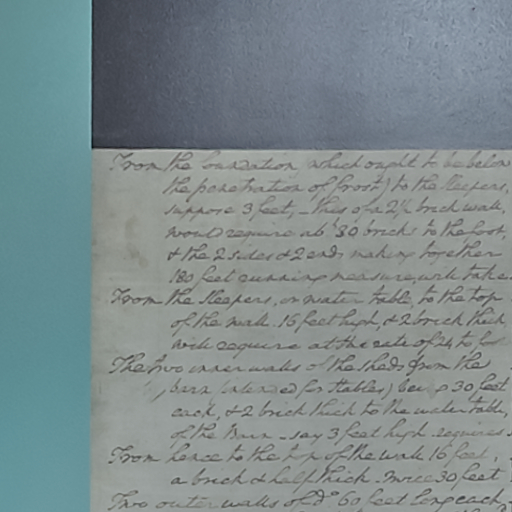 From the foundation (which ought to be below
the penetration of frost) to the sleepers,
suppose 3 feet, - this of a 2½ brick wall,
would require abt 30 bricks to the foot,
& the 2 sides & 2 ends making together
180 feet running measure, will take
From the sleepers, or water table, to the top
of the wall. 16 feet high, & 2 brick thick
will require at the rate of 24 to
The two inner walls of the sheds from the
Barn (intended for stables) being 30 feet
each, & 2 brick thick to the water table,
of the Barn - say 3 feet high requires
From hence to the top of the wall 16 feet,
a brick & half thick. twice 30 feet
Two outer walls of Do 60 feet long each